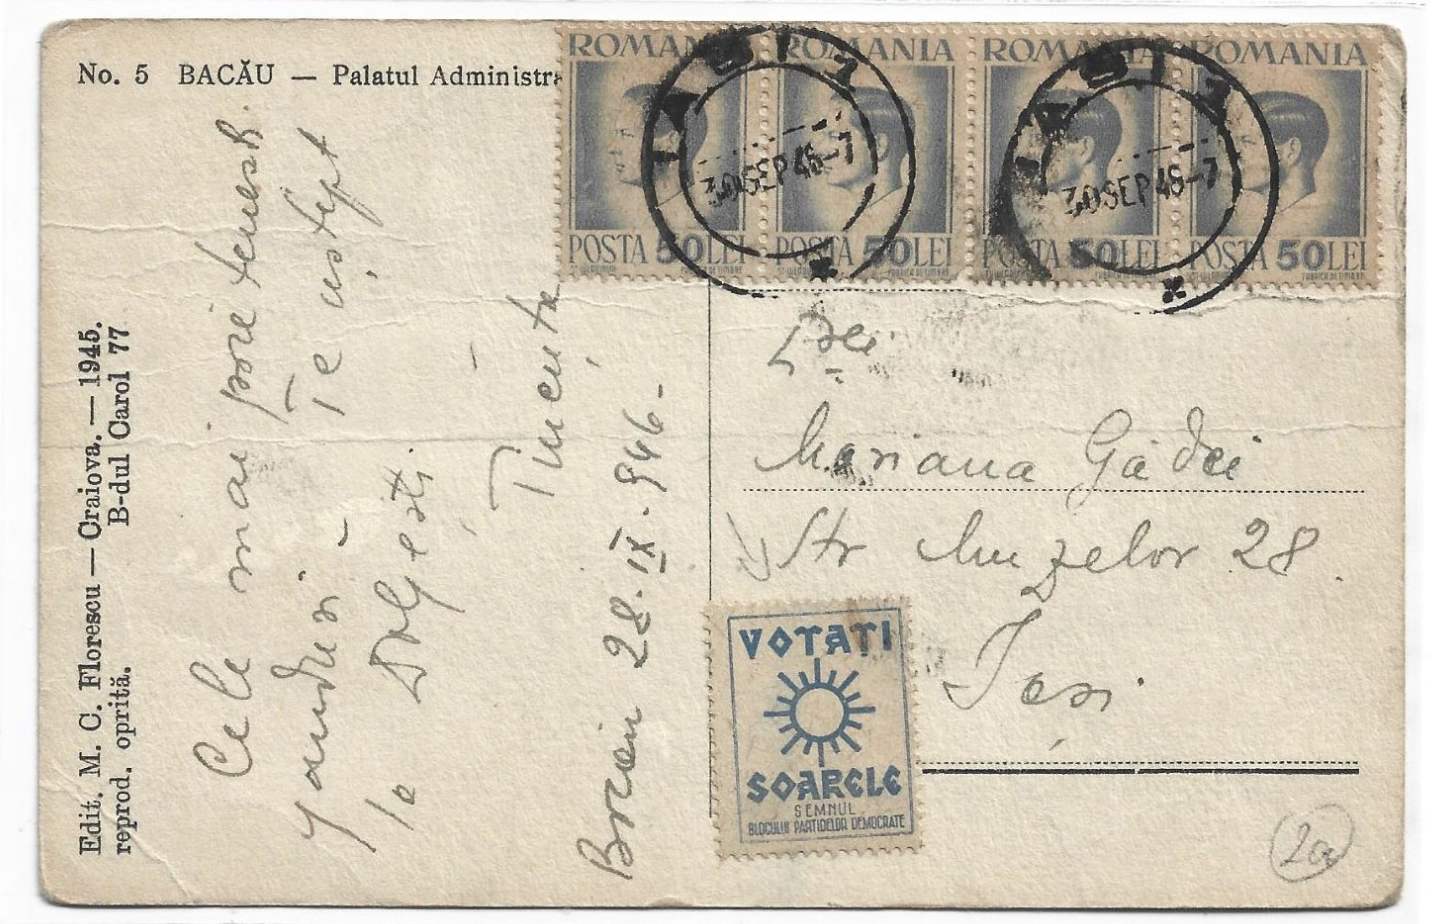 No. 5 BACĂU — Palatul Administra
Edit. M. C. Florescu — Craiova. — 1945.
reprod. oprită. B-dul Carol 77
Cele mai
gânduri
Te aștept
la Dolgești
Bacău 28·IX·946-
ROMANIA
POSTA 50 LEI
ROMANIA
POSTA 50 LEI
ROMANIA
POSTA 50 LEI
ROMANIA
POSTA 50 LEI
IASI 1
30 SEP 46-7
IASI 1
30 SEP 46-7
Mariana Gâdei
Str Muzelor 28.
Iași
VOTAȚI
SOARELE
SEMNUL
BLOCULUI PARTIDELOR DEMOCRATE
20